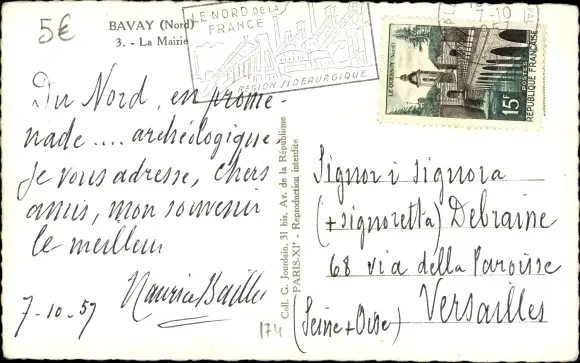 5€
BAVAY (Nord)
3. - La Mairie
LE NORD DE LA
FRANCE
REGION SIDERURGIQUE
7-10
LE QUESNOY (Nord)
15F
POSTES
REPUBLIQUE FRANÇAISE
Du Nord, en prome-
nade .... archéologique,
je vous adresse, chers
amis, mon souvenir
le meilleur
Maurice Bailleu
7-10-57
174
Coll. G. Jourdain, 31 bis, Av. de la République
PARIS-XIe - Reproduction interdite
Signor i signora
(+ signoretta) Debraine
68 via della Paroisse
Versailles
(Seine + Oise)